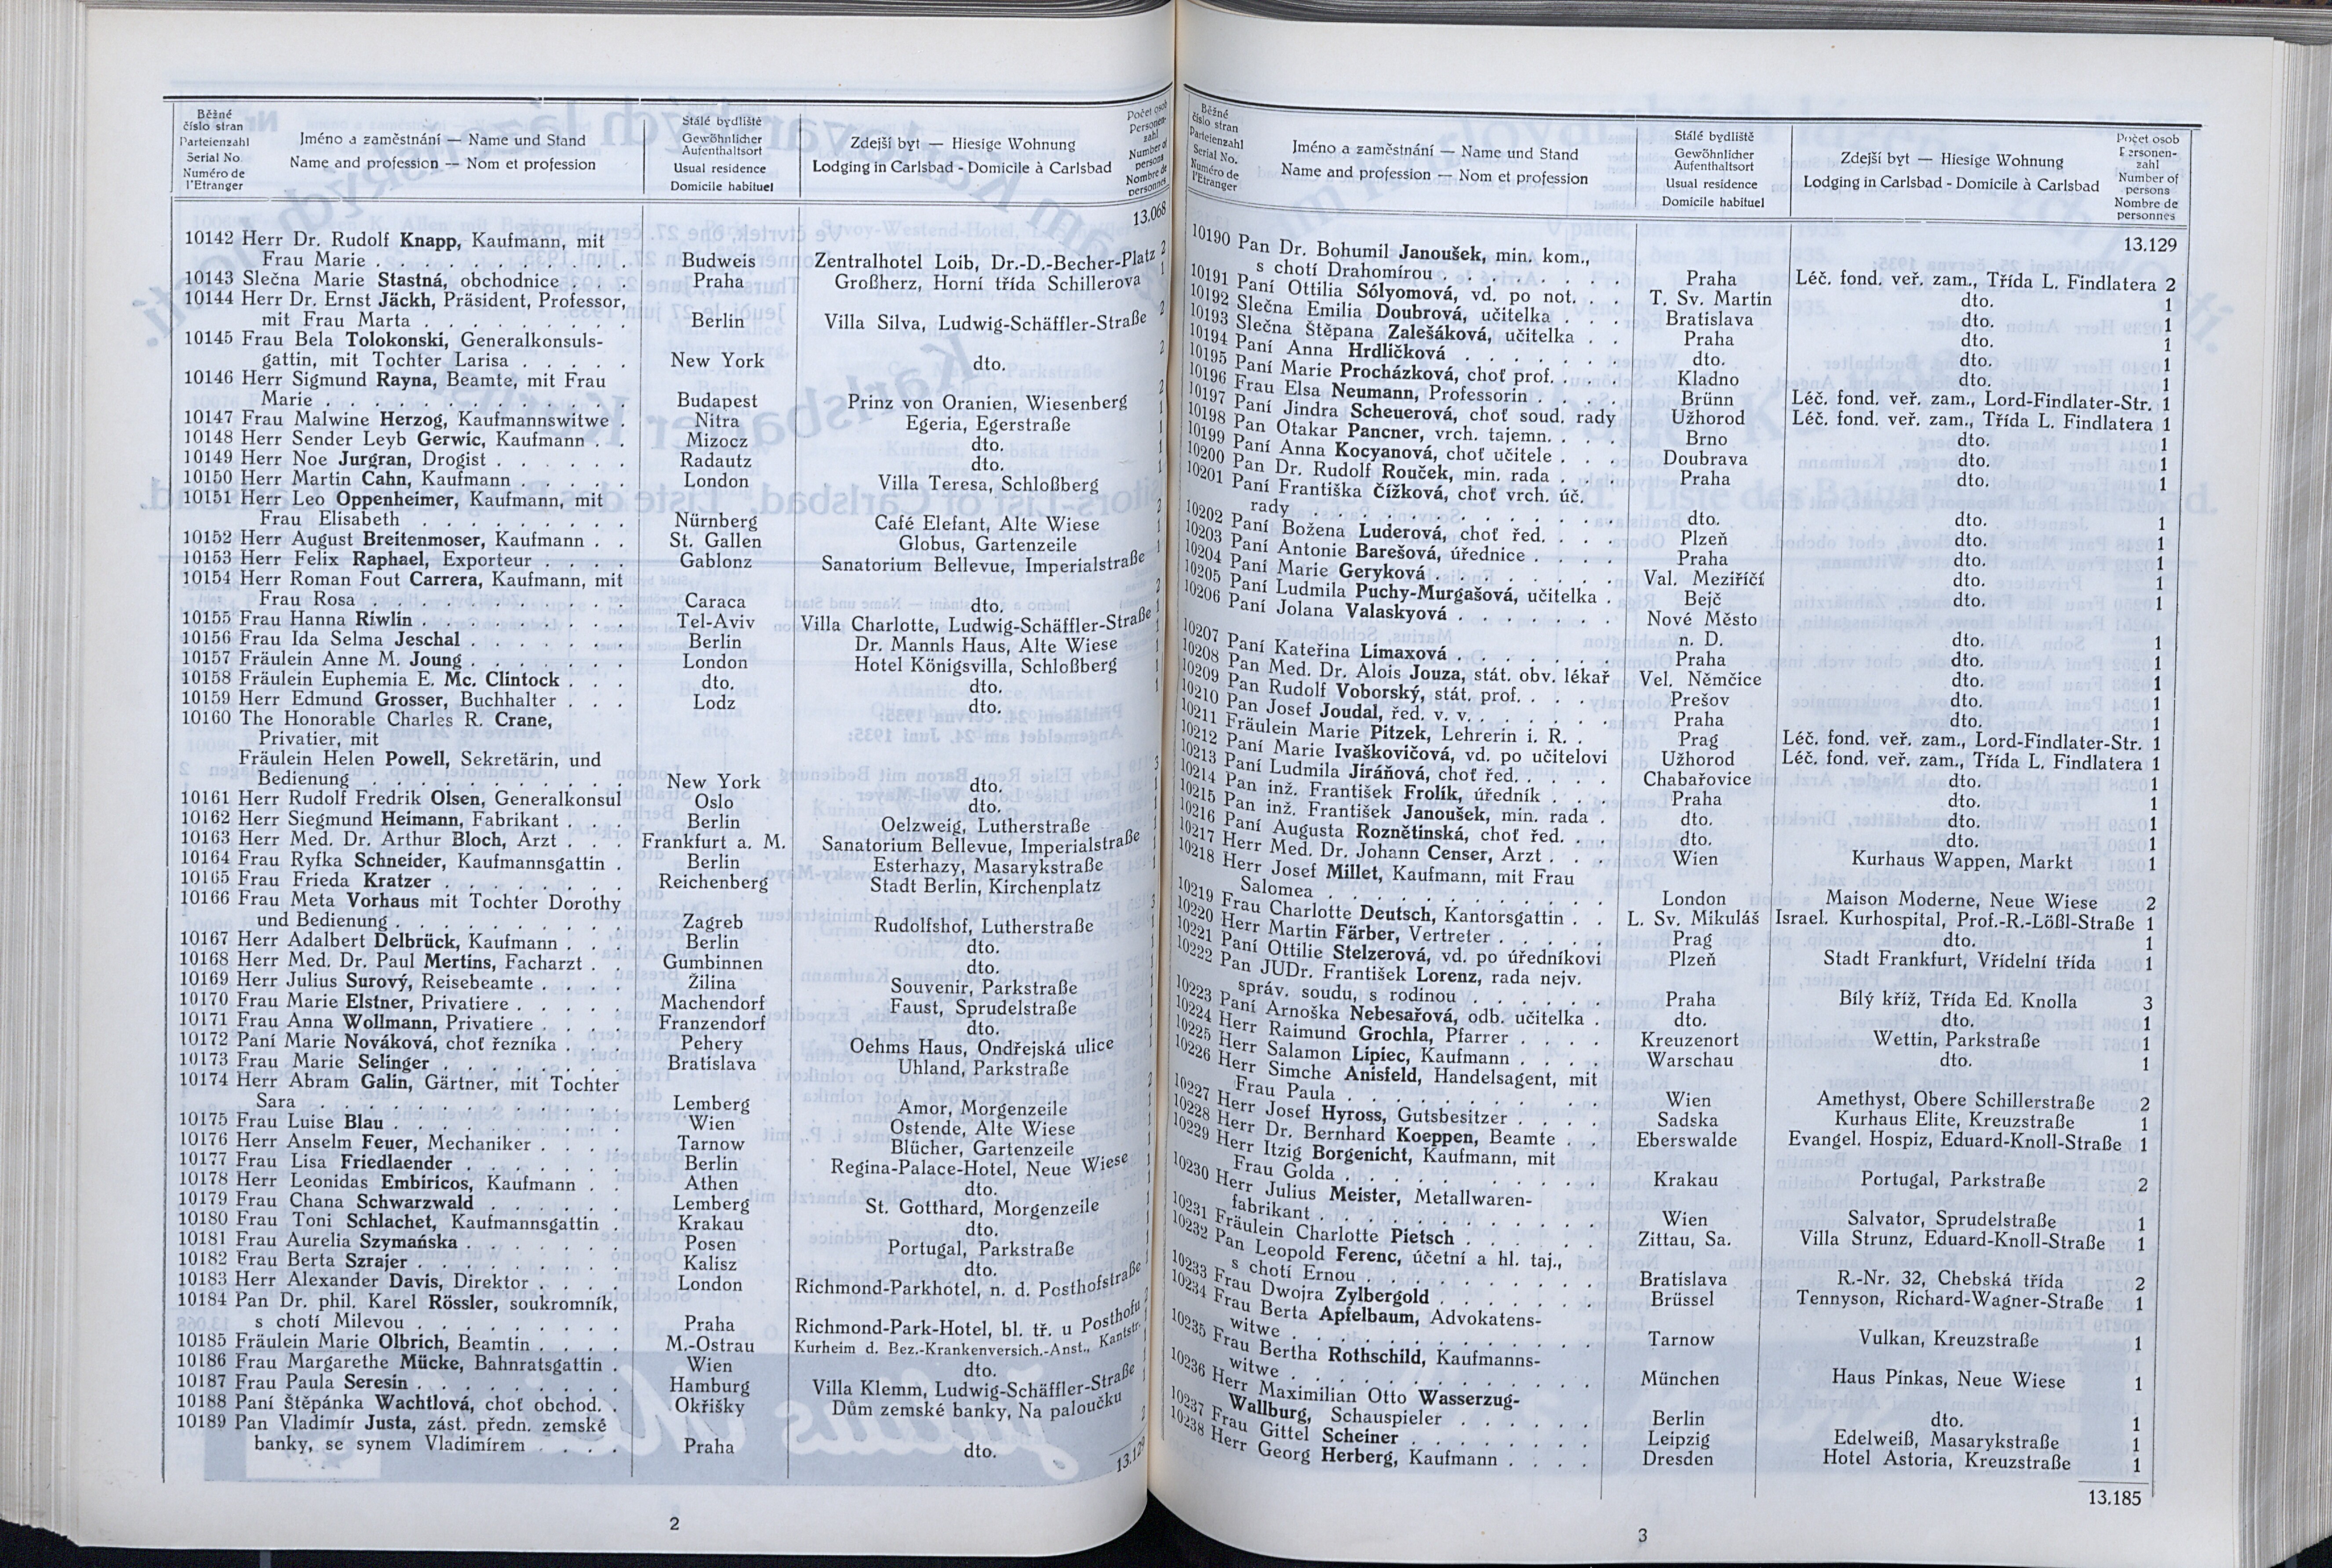 Běžné
číslo stran
Parteienzahl
Serial No.
Numéro de
l'Etranger
Jméno a zaměstnání — Name und Stand
Name and profession — Nom et profession
Stálé bydliště
Gewöhnlicher
Aufenthaltsort
Usual residence
Domicile habituel
Zdejší byt — Hiesige Wohnung
Lodging in Carlsbad - Domicile à Carlsbad
Počet osob
Personen-
zahl
Number of
persons
Nombre de
personnes
13.068
10142 Herr Dr. Rudolf Knapp, Kaufmann, mit
Frau Marie . . . Budweis Zentralhotel Loib, Dr.-D.-Becher-Platz 2
10143 Slečna Marie Stastná, obchodnice . . . Praha Großherz, Horní třída Schillerova 1
10144 Herr Dr. Ernst Jäckh, Präsident, Professor,
mit Frau Marta . . . Berlin Villa Silva, Ludwig-Schäffler-Straße 2
10145 Frau Bela Tolokonski, Generalkonsuls-
gattin, mit Tochter Larisa . . . New York dto. 2
10146 Herr Sigmund Rayna, Beamte, mit Frau
Marie . . . Budapest Prinz von Oranien, Wiesenberg 2
10147 Frau Malwine Herzog, Kaufmannswitwe . Nitra Egeria, Egerstraße 1
10148 Herr Sender Leyb Gerwic, Kaufmann . . Mizocz dto. 1
10149 Herr Noe Jurgran, Drogist . . . Radautz dto. 1
10150 Herr Martin Cahn, Kaufmann . . . London Villa Teresa, Schloßberg 1
10151 Herr Leo Oppenheimer, Kaufmann, mit
Frau Elisabeth . . . Nürnberg Café Elefant, Alte Wiese 2
10152 Herr August Breitenmoser, Kaufmann . . St. Gallen Globus, Gartenzeile 1
10153 Herr Felix Raphael, Exporteur . . . Gablonz Sanatorium Bellevue, Imperialstraße 1
10154 Herr Roman Fout Carrera, Kaufmann, mit
Frau Rosa . . . Caraca dto. 2
10155 Frau Hanna Riwlin . . . Tel-Aviv Villa Charlotte, Ludwig-Schäffler-Straße 1
10156 Frau Ida Selma Jeschal . . . Berlin Dr. Mannls Haus, Alte Wiese 1
10157 Fräulein Anne M. Joung . . . London Hotel Königsvilla, Schloßberg 1
10158 Fräulein Euphemia E. Mc. Clintock . . . dto. dto. 1
10159 Herr Edmund Grosser, Buchhalter . . . Lodz dto. 1
10160 The Honorable Charles R. Crane,
Privatier, mit
Fräulein Helen Powell, Sekretärin, und
Bedienung . . . New York dto. 3
10161 Herr Rudolf Fredrik Olsen, Generalkonsul Oslo dto. 1
10162 Herr Siegmund Heimann, Fabrikant . . . Berlin Oelzweig, Lutherstraße 1
10163 Herr Med. Dr. Arthur Bloch, Arzt . . . Frankfurt a. M. Sanatorium Bellevue, Imperialstraße 1
10164 Frau Ryfka Schneider, Kaufmannsgattin . Berlin Esterhazy, Masarykstraße 1
10165 Frau Frieda Kratzer . . . Reichenberg Stadt Berlin, Kirchenplatz 1
10166 Frau Meta Vorhaus mit Tochter Dorothy
und Bedienung . . . Zagreb Rudolfshof, Lutherstraße 3
10167 Herr Adalbert Delbrück, Kaufmann . . . Berlin dto. 1
10168 Herr Med. Dr. Paul Mertins, Facharzt . Gumbinnen dto. 1
10169 Herr Julius Surový, Reisebeamte . . . Žilina Souvenir, Parkstraße 1
10170 Frau Marie Elstner, Privatiere . . . Machendorf Faust, Sprudelstraße 1
10171 Frau Anna Wollmann, Privatiere . . . Franzendorf dto. 1
10172 Paní Marie Nováková, choť řezníka . . Pehery Oehms Haus, Ondřejská ulice 1
10173 Frau Marie Selinger . . . Bratislava Uhland, Parkstraße 1
10174 Herr Abram Galin, Gärtner, mit Tochter
Sara . . . Lemberg Amor, Morgenzeile 2
10175 Frau Luise Blau . . . Wien Ostende, Alte Wiese 1
10176 Herr Anselm Feuer, Mechaniker . . . Tarnow Blücher, Gartenzeile 1
10177 Frau Lisa Friedlaender . . . Berlin Regina-Palace-Hotel, Neue Wiese 1
10178 Herr Leonidas Embiricos, Kaufmann . . Athen dto. 1
10179 Frau Chana Schwarzwald . . . Lemberg St. Gotthard, Morgenzeile 1
10180 Frau Toni Schlachet, Kaufmannsgattin . Krakau dto. 1
10181 Frau Aurelia Szymańska . . . Posen Portugal, Parkstraße 1
10182 Frau Berta Szrajer . . . Kalisz dto. 1
10183 Herr Alexander Davis, Direktor . . . London Richmond-Parkhotel, n. d. Posthofstraße 1
10184 Pan Dr. phil. Karel Rössler, soukromník,
s chotí Milevou . . . Praha Richmond-Park-Hotel, bl. tř. u Posthofu 2
10185 Fräulein Marie Olbrich, Beamtin . . . M.-Ostrau Kurheim d. Bez.-Krankenversich.-Anst., Kantstr. 1
10186 Frau Margarethe Mücke, Bahnratsgattin . Wien dto. 1
10187 Frau Paula Seresin . . . Hamburg Villa Klemm, Ludwig-Schäffler-Straße 1
10188 Paní Štěpánka Wachtlová, choť obchod. . Okřišky Dům zemské banky, Na paloučku 1
10189 Pan Vladimír Justa, zást. předn. zemské
banky, se synem Vladimírem . . . Praha dto. 2
13.129
2
Běžné
číslo stran
Parteienzahl
Serial No.
Numéro de
l'Etranger
Jméno a zaměstnání — Name und Stand
Name and profession — Nom et profession
Stálé bydliště
Gewöhnlicher
Aufenthaltsort
Usual residence
Domicile habituel
Zdejší byt — Hiesige Wohnung
Lodging in Carlsbad - Domicile à Carlsbad
Počet osob
Personen-
zahl
Number of
persons
Nombre de
personnes
13.129
10190 Pan Dr. Bohumil Janoušek, min. kom.,
s chotí Drahomírou . . . Praha Léč. fond. veř. zam., Třída L. Findlatera 2
10191 Paní Ottilia Sólyomová, vd. po not. . . T. Sv. Martin dto. 1
10192 Slečna Emilia Doubrová, učitelka . . . Bratislava dto. 1
10193 Slečna Štěpana Zalešáková, učitelka . . Praha dto. 1
10194 Paní Anna Hrdličková . . . dto. dto. 1
10195 Paní Marie Procházková, choť prof. . . . Kladno dto. 1
10196 Frau Elsa Neumann, Professorin . . . Brünn Léč. fond. veř. zam., Lord-Findlater-Str. 1
10197 Paní Jindra Scheuerová, choť soud. rady Užhorod Léč. fond. veř. zam., Třída L. Findlatera 1
10198 Pan Otakar Pancner, vrch. tajemn. . . . Brno dto. 1
10199 Paní Anna Kocyanová, choť učitele . . . Doubrava dto. 1
10200 Pan Dr. Rudolf Rouček, min. rada . . . Praha dto. 1
10201 Paní Františka Čížková, choť vrch. úč.
rady . . . dto. dto. 1
10202 Paní Božena Luderová, choť řed. . . . Plzeň dto. 1
10203 Paní Antonie Barešová, úřednice . . . Praha dto. 1
10204 Paní Marie Geryková . . . Val. Meziříčí dto. 1
10205 Paní Ludmila Puchy-Murgašová, učitelka . Bejč dto. 1
10206 Paní Jolana Valaskyová . . . Nové Město
n. D. dto. 1
10207 Paní Kateřina Limaxová . . . Praha dto. 1
10208 Pan Med. Dr. Alois Jouza, stát. obv. lékař Vel. Němčice dto. 1
10209 Pan Rudolf Voborský, stát. prof. . . . Prešov dto. 1
10210 Pan Josef Joudal, řed. v. v. . . . Praha dto. 1
10211 Fräulein Marie Pitzek, Lehrerin i. R. . Prag Léč. fond. veř. zam., Lord-Findlater-Str. 1
10212 Paní Marie Ivaškovičová, vd. po učitelovi Užhorod Léč. fond. veř. zam., Třída L. Findlatera 1
10213 Paní Ludmila Jiráňová, choť řed. . . . Chabařovice dto. 1
10214 Pan inž. František Frolík, úředník . . . Praha dto. 1
10215 Pan inž. František Janoušek, min. rada . dto. dto. 1
10216 Paní Augusta Roznětínská, choť řed. . . dto. dto. 1
10217 Herr Med. Dr. Johann Censer, Arzt . . . Wien Kurhaus Wappen, Markt 1
10218 Herr Josef Millet, Kaufmann, mit Frau
Salomea . . . London Maison Moderne, Neue Wiese 2
10219 Frau Charlotte Deutsch, Kantorsgattin . . L. Sv. Mikuláš Israel. Kurhospital, Prof.-R.-Lößl-Straße 1
10220 Herr Martin Färber, Vertreter . . . Prag dto. 1
10221 Paní Ottilie Stelzerová, vd. po úředníkovi Plzeň Stadt Frankfurt, Vřídelní třída 1
10222 Pan JUDr. František Lorenz, rada nejv.
správ. soudu, s rodinou . . . Praha Bílý kříž, Třída Ed. Knolla 3
10223 Paní Arnoška Nebesařová, odb. učitelka . dto. dto. 1
10224 Herr Raimund Grochla, Pfarrer . . . Kreuzenort Wettin, Parkstraße 1
10225 Herr Salamon Lipiec, Kaufmann . . . Warschau dto. 1
10226 Herr Simche Anisfeld, Handelsagent, mit
Frau Paula . . . Wien Amethyst, Obere Schillerstraße 2
10227 Herr Josef Hyross, Gutsbesitzer . . . Sadska Kurhaus Elite, Kreuzstraße 1
10228 Herr Dr. Bernhard Koeppen, Beamte . . Eberswalde Evangel. Hospiz, Eduard-Knoll-Straße 1
10229 Herr Itzig Borgenicht, Kaufmann, mit
Frau Golda . . . Krakau Portugal, Parkstraße 2
10230 Herr Julius Meister, Metallwaren-
fabrikant . . . Wien Salvator, Sprudelstraße 1
10231 Fräulein Charlotte Pietsch . . . Zittau, Sa. Villa Strunz, Eduard-Knoll-Straße 1
10232 Pan Leopold Ferenc, účetní a hl. taj.,
s chotí Ernou . . . Bratislava R.-Nr. 32, Chebská třída 2
10233 Frau Dwojra Zylbergold . . . Brüssel Tennyson, Richard-Wagner-Straße 1
10234 Frau Berta Apfelbaum, Advokatens-
witwe . . . Tarnow Vulkan, Kreuzstraße 1
10235 Frau Bertha Rothschild, Kaufmanns-
witwe . . . München Haus Pinkas, Neue Wiese 1
10236 Herr Maximilian Otto Wasserzug-
Wallburg, Schauspieler . . . Berlin dto. 1
10237 Frau Gittel Scheiner . . . Leipzig Edelweiß, Masarykstraße 1
10238 Herr Georg Herberg, Kaufmann . . . Dresden Hotel Astoria, Kreuzstraße 1
13.185
3